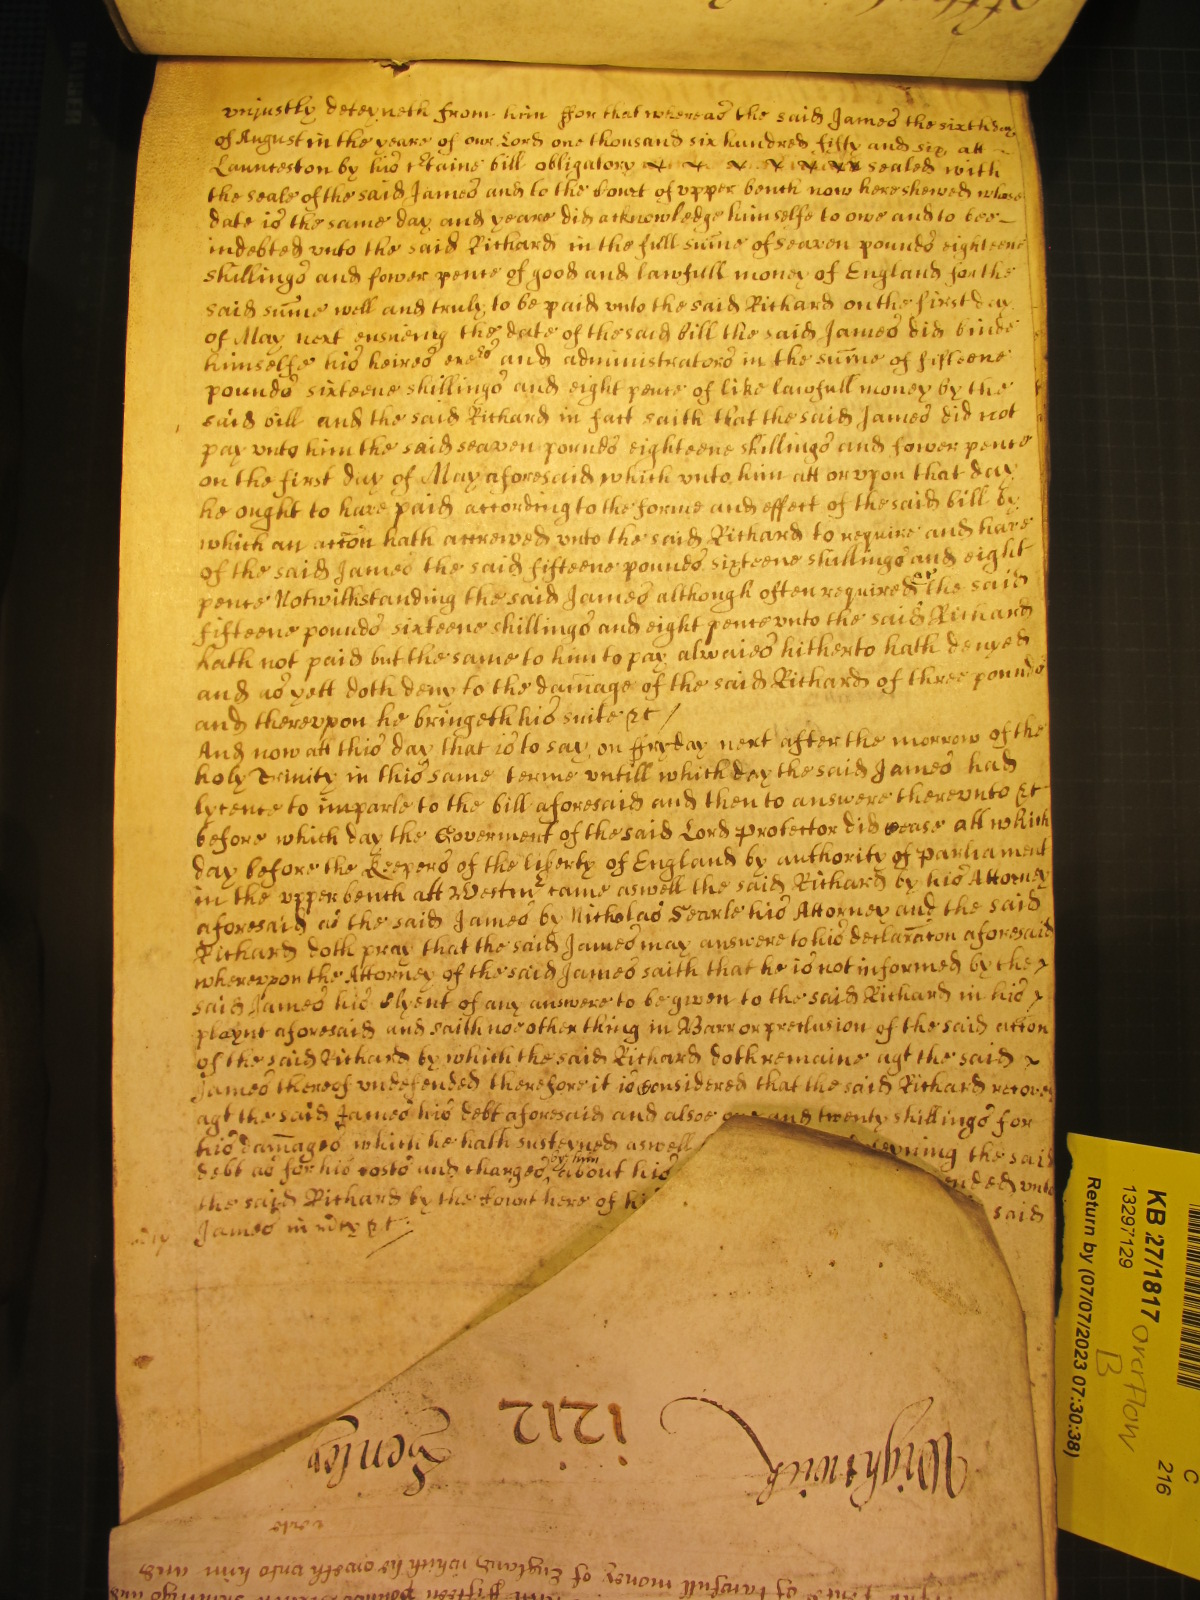 vnjustly deteyneth from him ffor that whereas the said James the sixth day
of August in the yeare of our Lord one thousand six hundred fifty and six att
Launceston by his c̃taine bill obligatory sealed with
the seale of the said James and to the Court of vpper bench now here shewed whose
date is the same day and yeare did acknowledge himselfe to owe and to bee
indebted vnto the said Richard in the full sum̃e of seaven pounds eighteene
shillings and fower pence of good and lawfull money of England for the
said sum̃e well and truly to be paid vnto the said Richard on the first day
of May next ensueing the date of the said bill the said James did binde
himselfe his heires exe^rs and administrators in the sum̃e of fifteene
pounds sixteene shillings and eight pence of like lawfull money by the
said bill and the said Richard in fact saith that the said James did not
pay vnto him the said seaven pounds eighteene shillings and fower pence
on the first day of May aforesaid which vnto him att or vpon that day
he ought to have paid according to the forme and effect of the said bill by
which an acc̃on hath accrewed vnto the said Richard to require and have
of the said James the said fifteene pounds sixteene shillings and eight
pence Notwithstanding the said James although often required &c the said
fifteene pounds sixteene shillings and eight pence vnto the said Richard
hath not paid but the same to him to pay alwaies hitherto hath denyed
and as yett doth deny to the dam̃age of the said Richard of three pounds
and therevpon he bringeth his suite &c /
And now att this day that is to say on ffryday next after the morrow of the
holy Trinity in this same terme vntill which day the said James had
lycence to imparle to the bill aforesaid and then to answere therevnto &c
before which day the Goverment of the said Lord Protector did cease att which
day before the Keepers of the liberty of England by authority of Parliament
in the vpper bench att Westm^r came aswell the said Richard by his Attorney
aforesaid as the said James by Nicholas Searle his Attorney and the said
Richard doth pray that the said James may answere to his declarac̃on aforesaid
wherevpon the Attorney of the said James saith that he is not informed by the
said James his Clyent of any answere to be given to the said Richard in his
playnt aforesaid and saith noe other thing in Barr or preclusion of the said acc̃on
of the said Richard by which the said Richard doth remaine agt the said
James thereof vndefended therefore it is considered that the said Richard recover
agt the said James his debt aforesaid and alsoe and twenty shillings for
his dam̃ages which he hath susteyned aswell the said
debt as for his costs and charges by him about his vnto
the said Richard by the Court here of said
James in m̃cy &c /
Wightwick
1212
Henley
KB 27/1817 overflow
B
13297129
Return by (07/07/2023 07:30:38)
C
216
of lawfull money of England which he oweth vnto him and